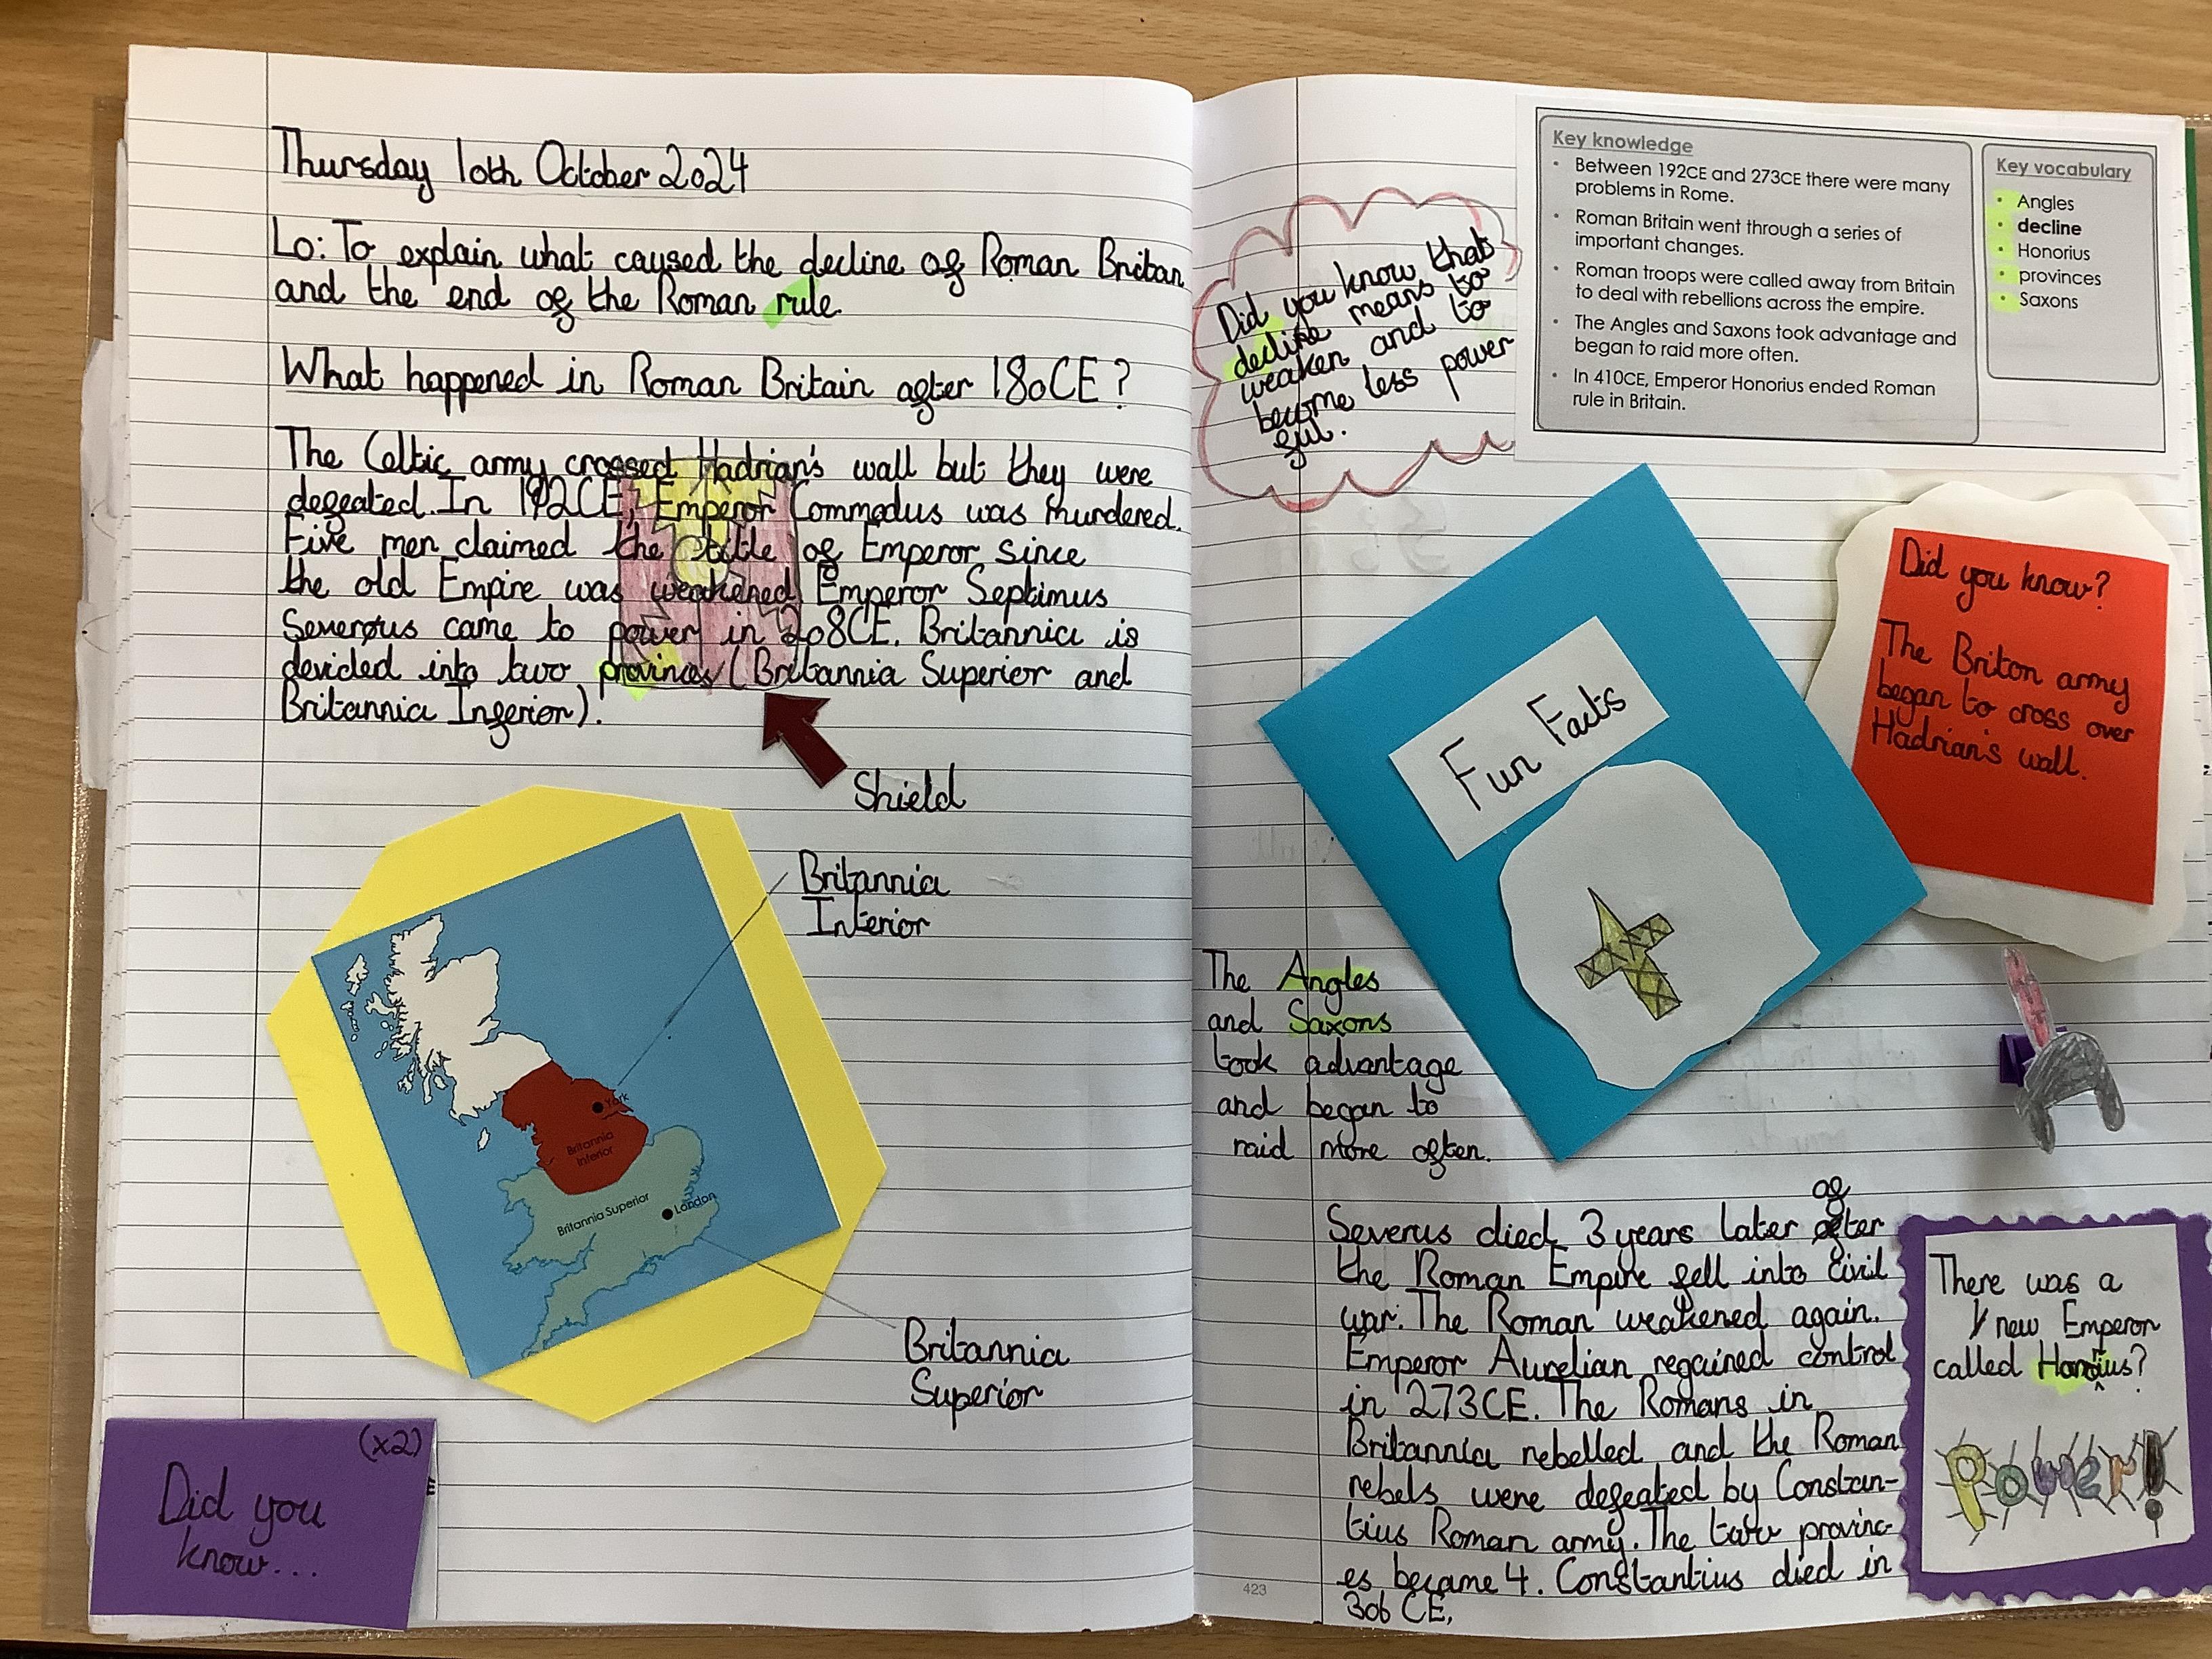 Thursday 10th October 2024
Lo: To explain what caused the decline of Roman Britan
and the end of the Roman rule.
What happened in Roman Britain after 180CE?
The Celtic army crossed Hadrian's wall but they were
defeated. In 192CE, Emperor Commodus was murdered.
Five men claimed the title of Emperor since
the old Empire was weakened. Emperor Septimus
Severous came to power in 208CE. Britannia is
devided into two provinces (Britannia Superior and
Britannia Inferior).
Shield
Britannia
Interior
York
Britannia
Inferior
Britannia Superior
London
Britannia
Superior
(x2)
Did you
know...
Did you know that
decline means to
weaken and to
become less power
ful.
Key knowledge
• Between 192CE and 273CE there were many
problems in Rome.
• Roman Britain went through a series of
important changes.
• Roman troops were called away from Britain
to deal with rebellions across the empire.
• The Angles and Saxons took advantage and
began to raid more often.
• In 410CE, Emperor Honorius ended Roman
rule in Britain.
Key vocabulary
• Angles
• decline
• Honorius
• provinces
• Saxons
Fun Facts
Did you know?
The Briton army
began to cross over
Hadrian's wall.
The Angles
and Saxons
took advantage
and began to
raid more often.
Severus died 3 years later after
the Roman Empire fell into civil
war. The Roman weakened again.
Emperor Aurelian regained control
in 273CE. The Romans in
Britannia rebelled and the Roman
rebels were defeated by Constan-
tius Roman army. The two provinc-
es became 4. Constantius died in
306 CE.
There was a
new Emperor
called Honorius?
Power!
423